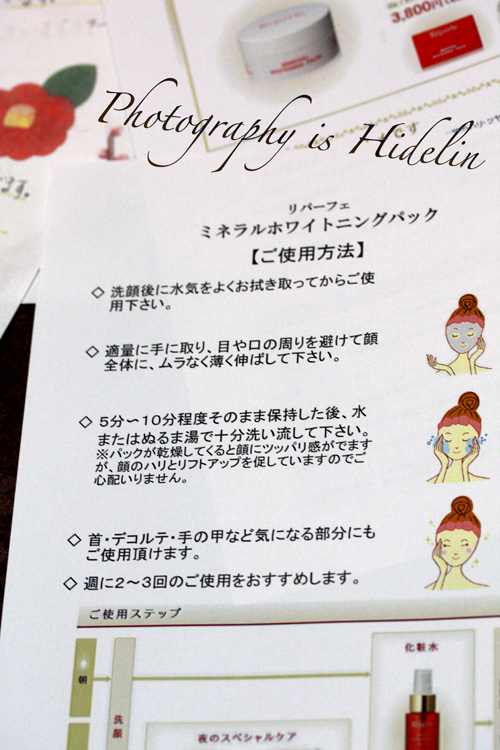 3,800円
Photography is Hidelin
リバーフェ
ミネラルホワイトニングパック
【ご使用方法】
◇ 洗顔後に水気をよくお拭き取ってからご使
用下さい。
◇ 適量に手に取り、目や口の周りを避けて顔
全体に、ムラなく薄く伸ばして下さい。
◇ 5分〜10分程度そのまま保持した後、水
またはぬるま湯で十分洗い流して下さい。
※パックが乾燥してくると顔にツッパリ感がでます
が、顔のハリとリフトアップを促していますのでご
心配いりません。
◇ 首・デコルテ・手の甲など気になる部分にも
ご使用頂けます。
◇ 週に2〜3回のご使用をおすすめします。
ご使用ステップ
朝
洗顔
化粧水
夜のスペシャルケア